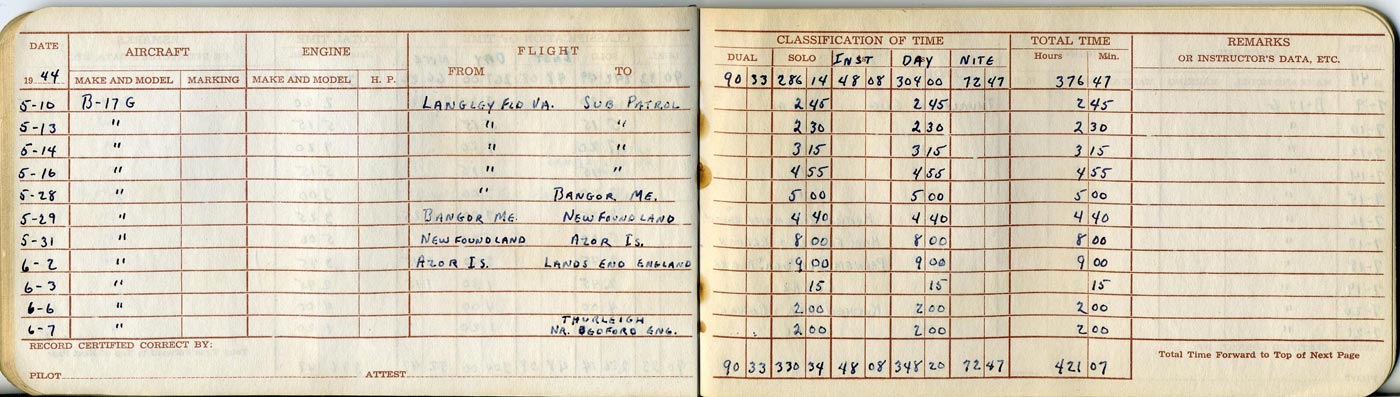 DATE AIRCRAFT ENGINE FLIGHT CLASSIFICATION OF TIME TOTAL TIME REMARKS
19 44 MAKE AND MODEL MARKING MAKE AND MODEL H. P. FROM TO DUAL SOLO INST DAY NITE Hours Min. OR INSTRUCTOR'S DATA, ETC.
90 33 286 14 48 08 304 00 72 47 376 47
5-10 B-17 G LANGLEY FLD VA. SUB PATROL 2 45 2 45 2 45
5-13 " " " 2 30 2 30 2 30
5-14 " " " 3 15 3 15 3 15
5-16 " " " 4 55 4 55 4 55
5-28 " " BANGOR ME. 5 00 5 00 5 00
5-29 " BANGOR ME. NEWFOUNDLAND 4 40 4 40 4 40
5-31 " NEWFOUNDLAND AZOR IS. 8 00 8 00 8 00
6-2 " AZOR IS. LANDS END ENGLAND 9 00 9 00 9 00
6-3 " 15 15 15
6-6 " 2 00 2 00 2 00
6-7 " THURLEIGH NR. BEDFORD ENG. 2 00 2 00 2 00
RECORD CERTIFIED CORRECT BY: Total Time Forward to Top of Next Page
PILOT ATTEST 90 33 330 34 48 08 348 20 72 47 421 07